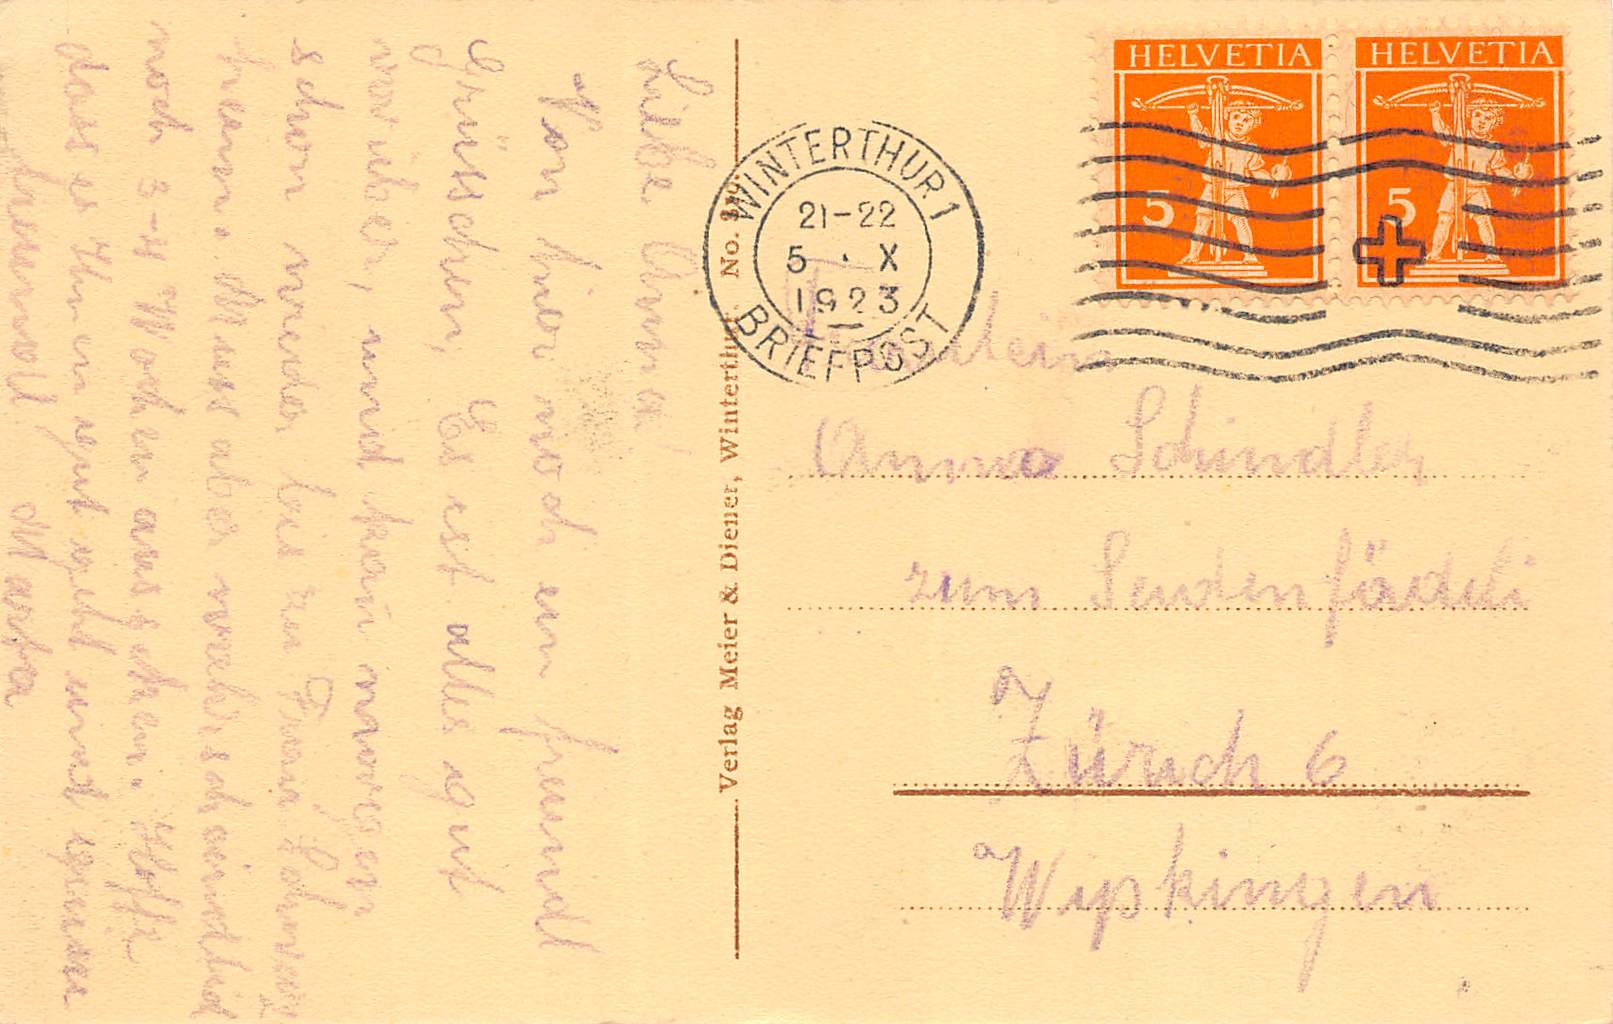 Liebe Anna!
Von hier noch ein freundl
Grüsschen, Es ist alles gut
vorüber, und kann morgen
schon wieder bis zu Frau
heim. Muss aber wahrscheindlich
noch 3-4 Wochen aussetzen. Hoffe
dass es Ihnen gut geht und grüsse
freundl. Martha
Verlag Meier & Diener, Winterthur. No.
HELVETIA
5
HELVETIA
5
WINTERTHUR 1
21-22
5 · X
1923
BRIEFPOST
Fräulein
Anna Schindler
zum
Zürich 6
Wipkingen